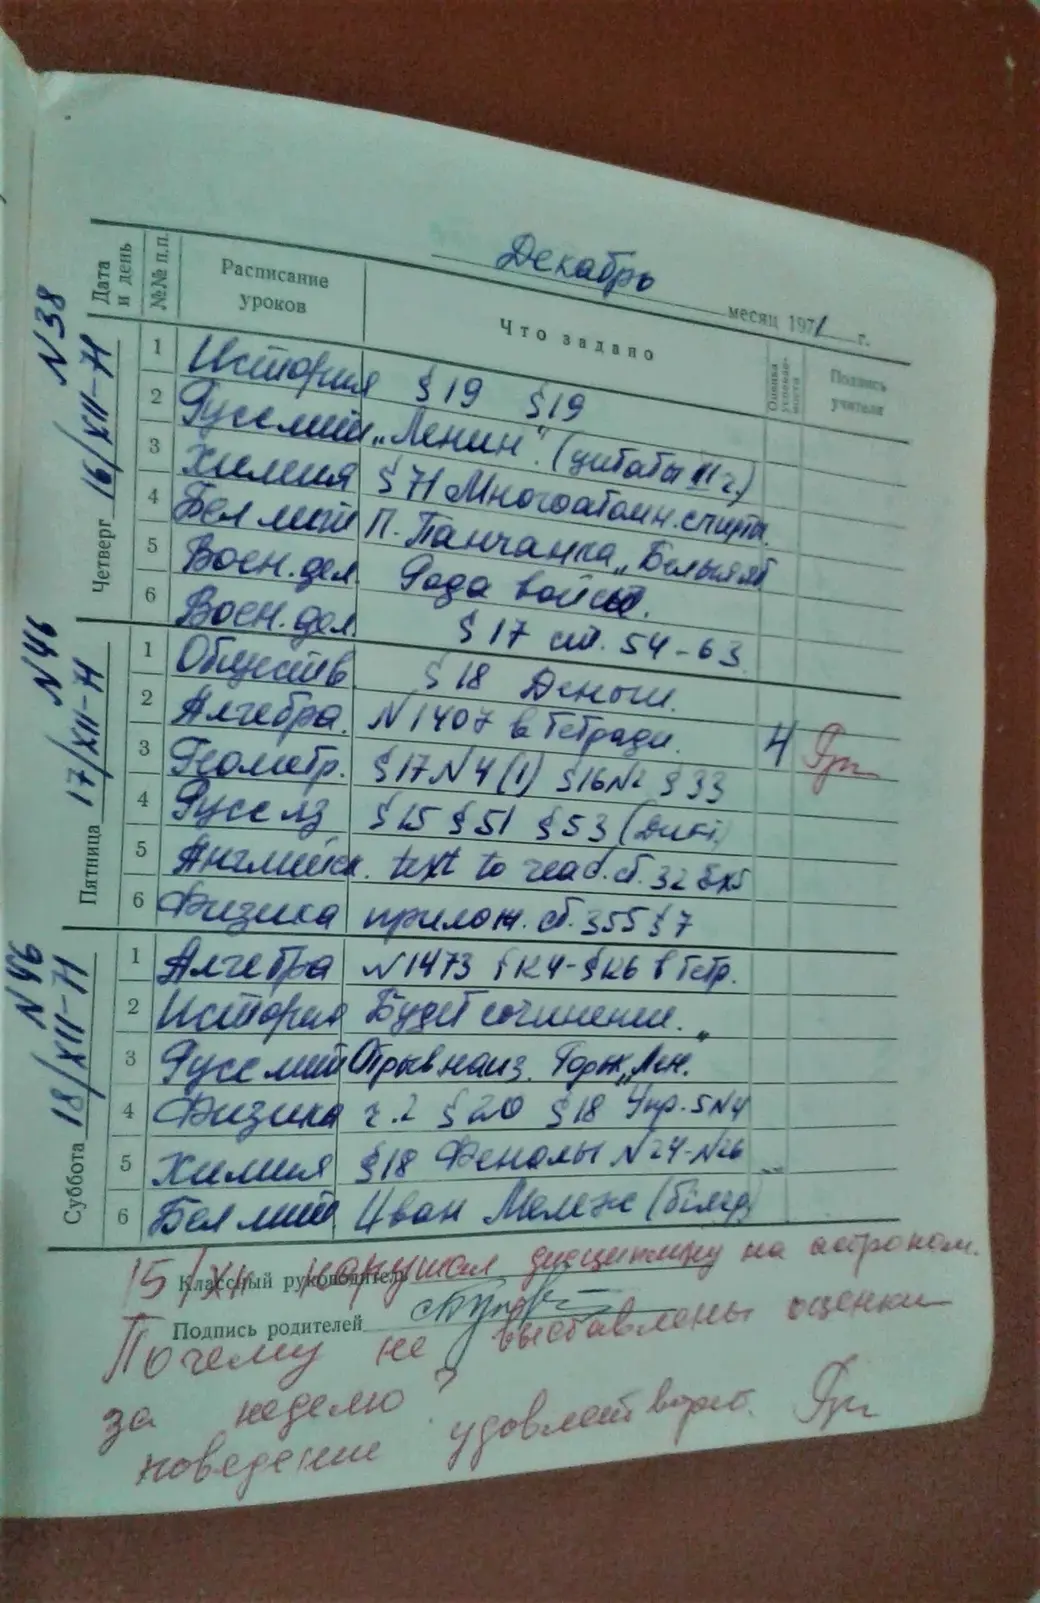 Декабрь месяц 1971 г.
Дата и день №№ п.п. Расписание уроков Что задано Оценка успеваемости Подпись учителя
N38
Четверг 16/XII-71
1 История §19 §19
2 Русс лит „Ленин". (цитаты III г.)
3 Химия §71 Многоатомн. спирты.
4 Бел лит П. Панчанка
5 Воен. дел. Рода войск.
6 Воен. дел. §17 ст. 54-63
N46
Пятница 17/XII-71
1 Обществ. §18 Деньги.
2 Алгебра. N1407 в тетради. 4
3 Геометр. §17 N4 (1) §16 N2 §33
4 Русс яз §15 §51 §53
5 Английск. text to read. ст. 32
6 Физика прилож. ст. 355 §7
N46
Суббота 18/XII-71
1 Алгебра N1473 в тетр.
2 История Будет сочинение.
3 Русс лит Отрыв наиз. Горьк „Лен."
4 Физика ч. 2 §20 §18 Упр. 5 N4
5 Химия §18 Фенолы N24-N26
6 Бел лит Иван Мележ
15/XII нарушал дисциплину на астроном.
Классный руководитель
Подпись родителей
Почему не выставлены оценки
за неделю?
поведение удовлетворит.